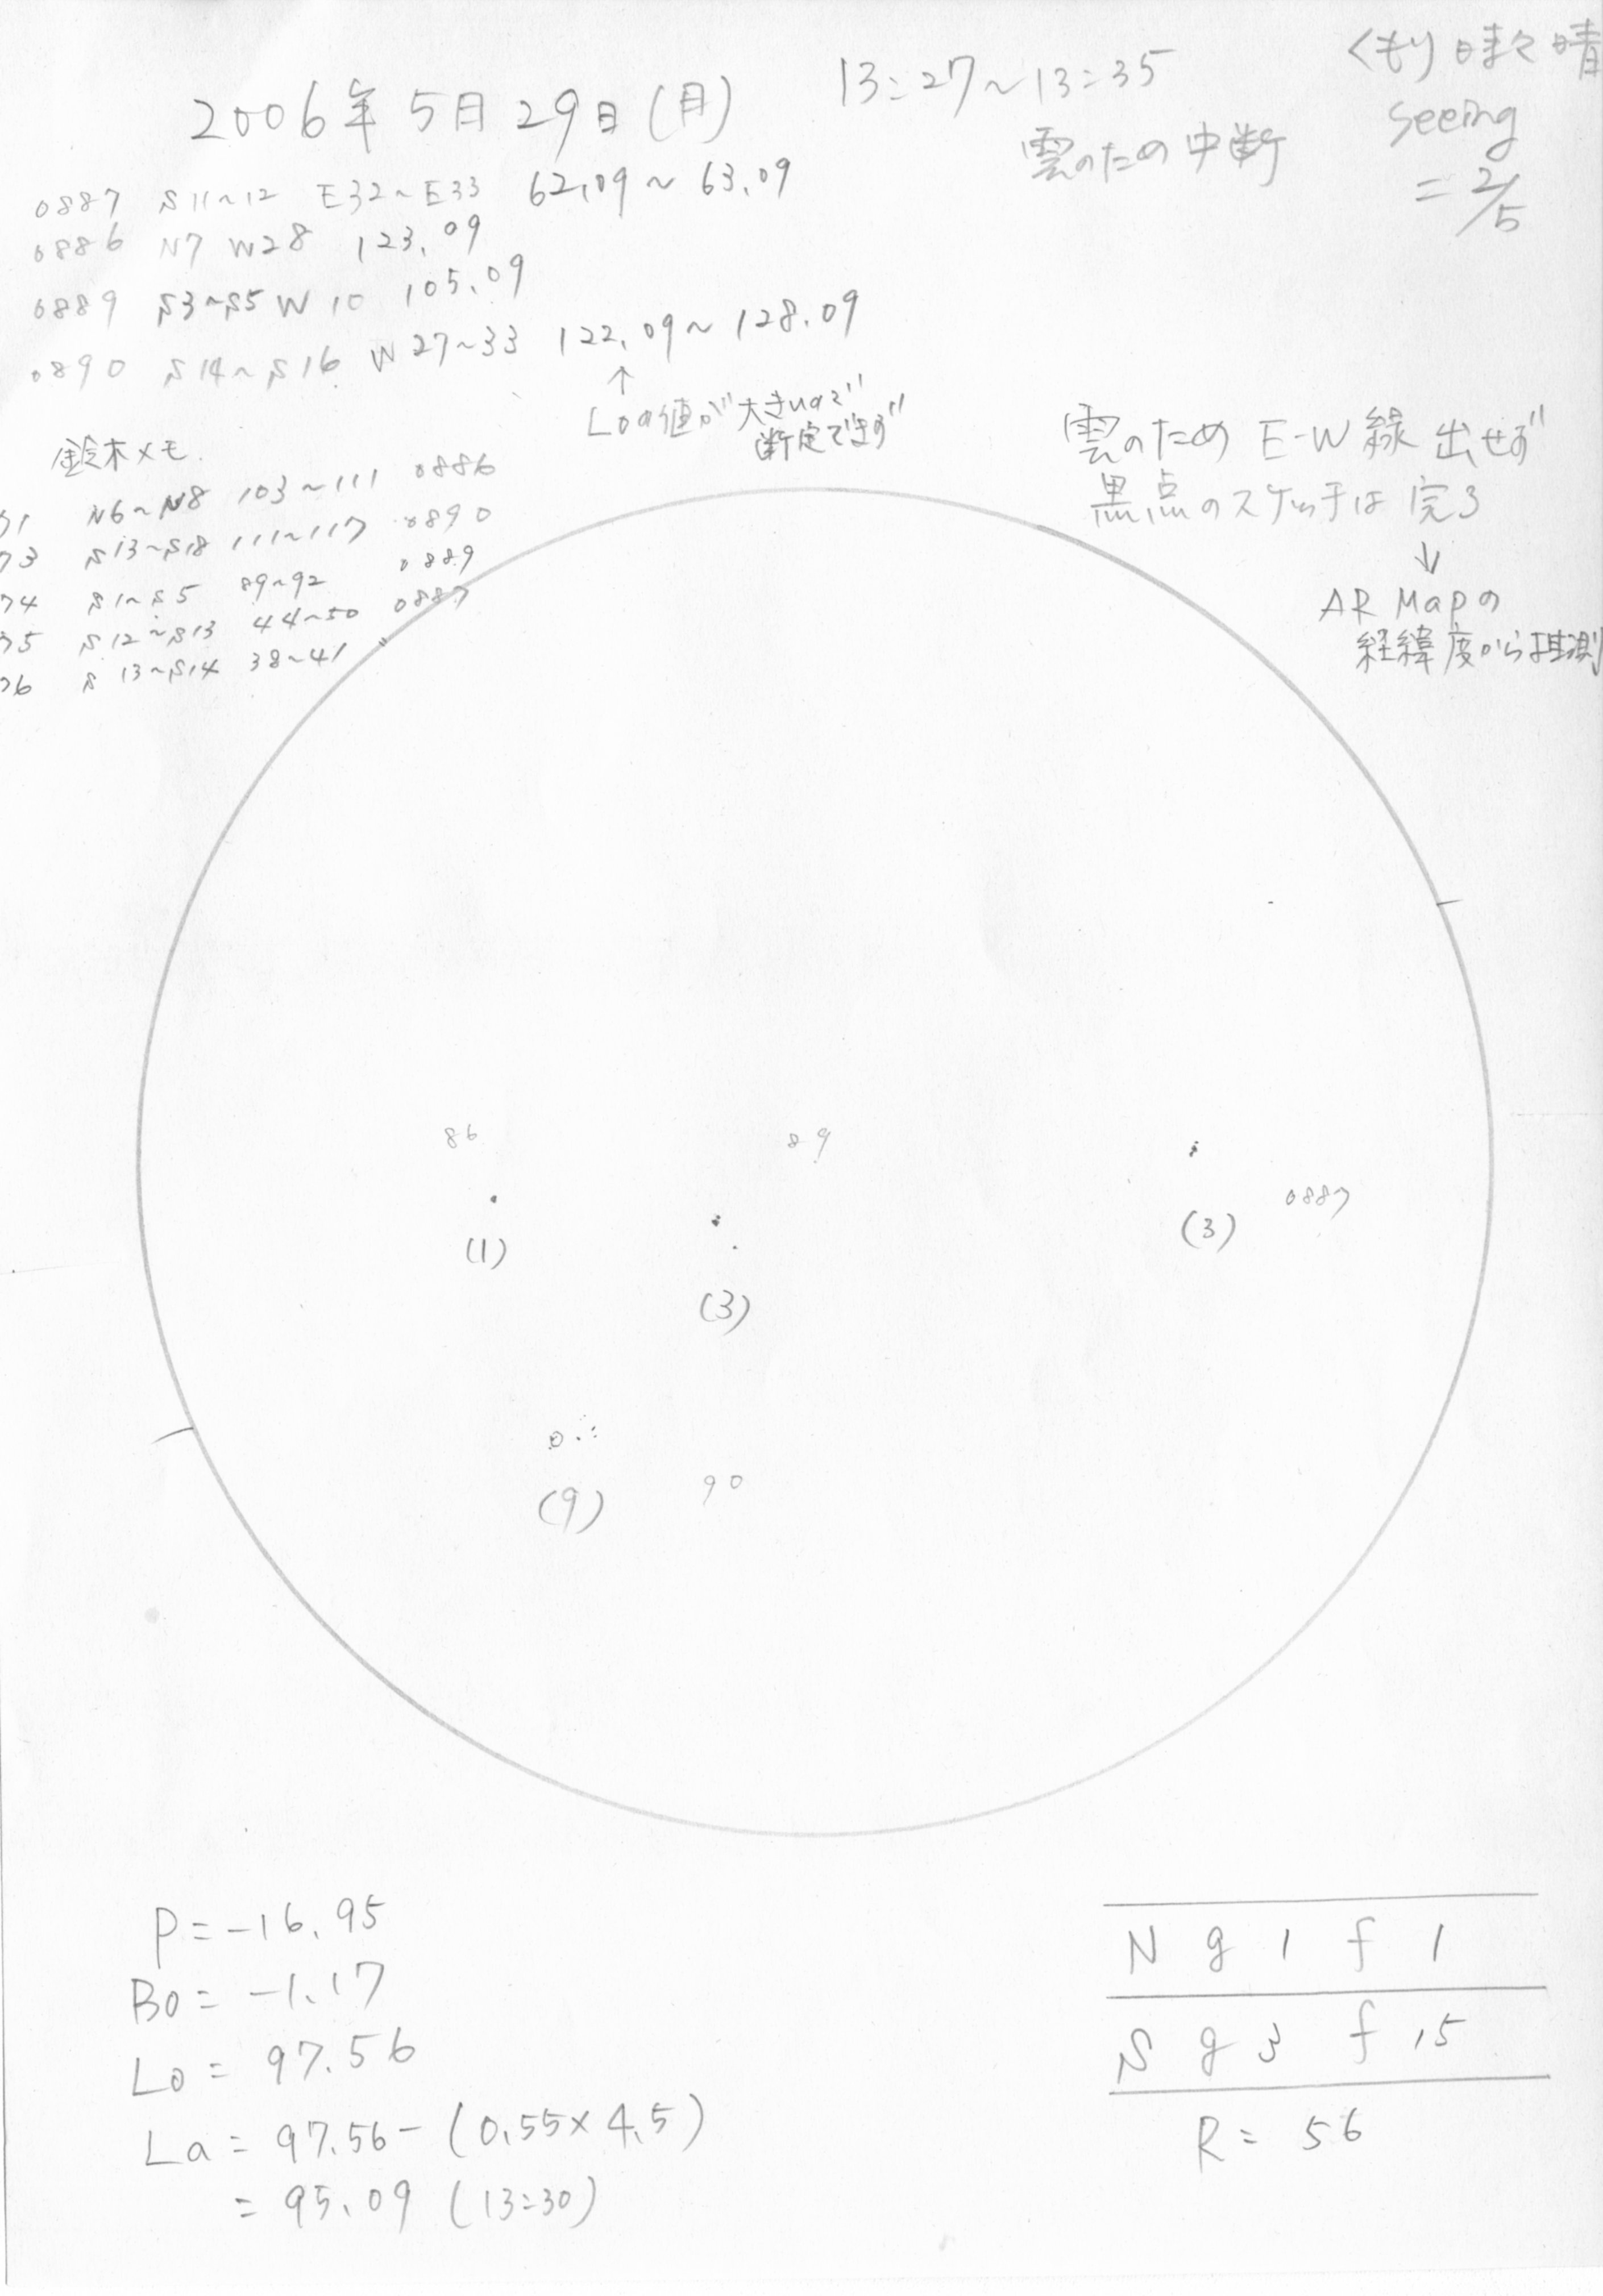 2006年5月29日(月)
13:27～13:35
くもり時々晴
雲のため中断
seeing
=2/5
0887 S11～12 E32～E33 62.09～63.09
0886 N7 W28 123.09
0889 S3～S5 W10 105.09
0890 S14～S16 W27～33 122.09～128.09
↑
Loの値が大きいので
断定できず
雲のため E-W線 出せず
黒点のスケッチは完了
↓
AR Mapの
経緯度から推測
鈴木メモ
71 N6～N8 103～111 0886
73 S13～S18 111～117 0890
74 S1～S5 89～92 0889
75 S12～S13 44～50 0887
76 S13～S14 38～41
86
89
0887
(1)
(3)
(3)
90
(9)
P=-16.95
B0=-1.17
L0=97.56
La=97.56-(0.55×4.5)
=95.09 (13:30)
N g 1 f 1
S g 3 f 15
R=56